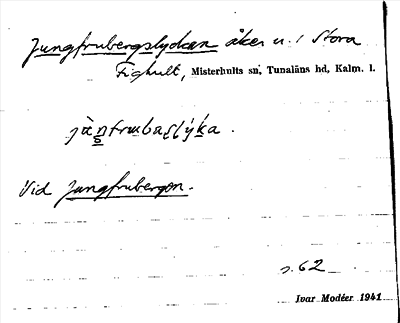 Jungfrubergslyckan åker u. / Stora
Fighult, Misterhults sn, Tunaläns hd, Kalm. l.
Vid Jungfrubergen.
s. 62
Ivar Modéer 1941